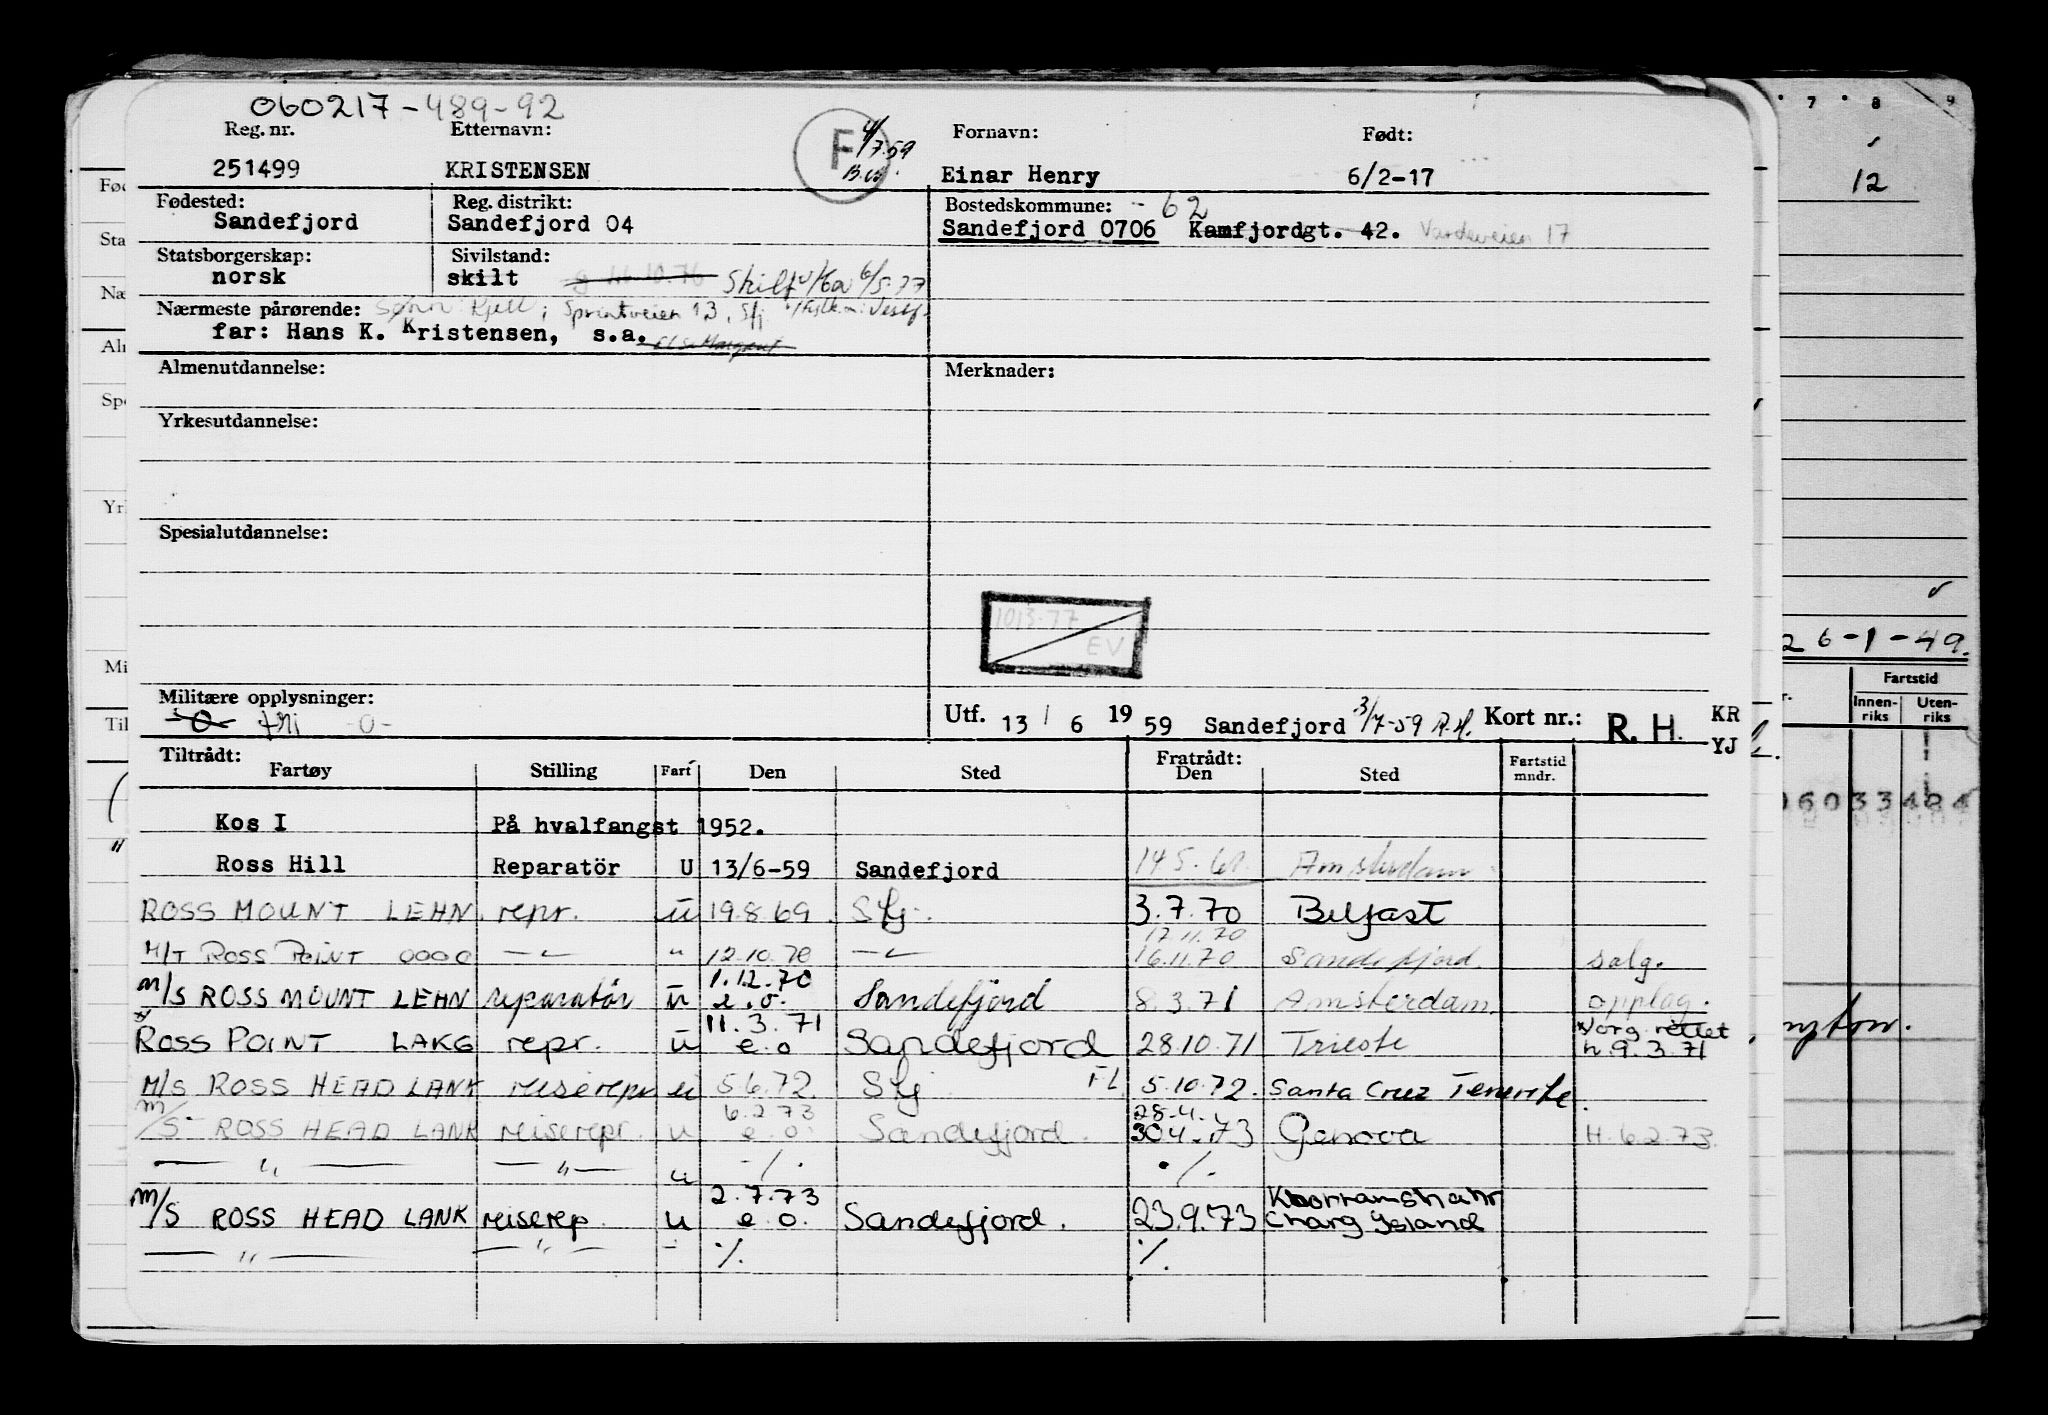 060217-489-92
Reg. nr. Etternavn: Fornavn: Født:
251499 KRISTENSEN F 4/7.59 Einar Henry 6/2-17
Fødested: Reg. distrikt: Bostedskommune: - 62
Sandefjord Sandefjord 04 Sandefjord 0706 Kamfjordgt. 42. Vardeveien 17
Statsborgerskap: Sivilstand:
norsk skilt 6/5.77
Nærmeste pårørende: Sønn Kjell; Sprintveien 13, Sfj
far: Hans K. Kristensen, s.a.
Almenutdannelse: Merknader:
Yrkesutdannelse:
Spesialutdannelse:
1013-77
EV
Militære opplysninger:
-0- fri -0-
Utf. 13 / 6 1959 Sandefjord 3/7-59 R.H. Kort nr.: R. H. KR
YJ
Tiltrådt: Fratrådt:
Fartøy Stilling Fart Den Sted Den Sted Fartstid mndr.
Kos I På hvalfangst 1952.
Ross Hill Reparatör U 13/6-59 Sandefjord Amsterdam
ROSS MOUNT LEHN repr. u 19.8.69 Sfj. 3.7.70 Belfast
17.11.70
M/T ROSS POINT OOOO —"— " 12.10.70 —"— 16.11.70 Sandefjord. salg.
1.12.70
M/S ROSS MOUNT LEHN reparatør u e.o. Sandefjord 8.3.71 Amsterdam opplag.
11.3.71
x ROSS POINT LAKG repr. u e.o Sandefjord 28.10.71 Trieste xorg rettet
h. 9.3.71
M/S ROSS HEAD LANK reiserepr u 5.6.72. Sfj FL 5.10.72. Santa Cruz Tenerife.
6.2.73 28.4.
M/S ROSS HEAD LANK reiserepr. u e.o. Sandefjord. 30.4.73 Genova H. 6.2.73.
— " — — " — u -/. ./.
2.7.73 Khorramshahr
M/S ROSS HEAD LANK reiserep. u e.o. Sandefjord. 23.9.73 Charg Island
— " — — " — - ./. ./.
Fød
Sta
Næ
Aln
Spe
Yrl
Mi
Til
7 8 9
12
26-1-49.
Fartstid
Innenriks Utenriks